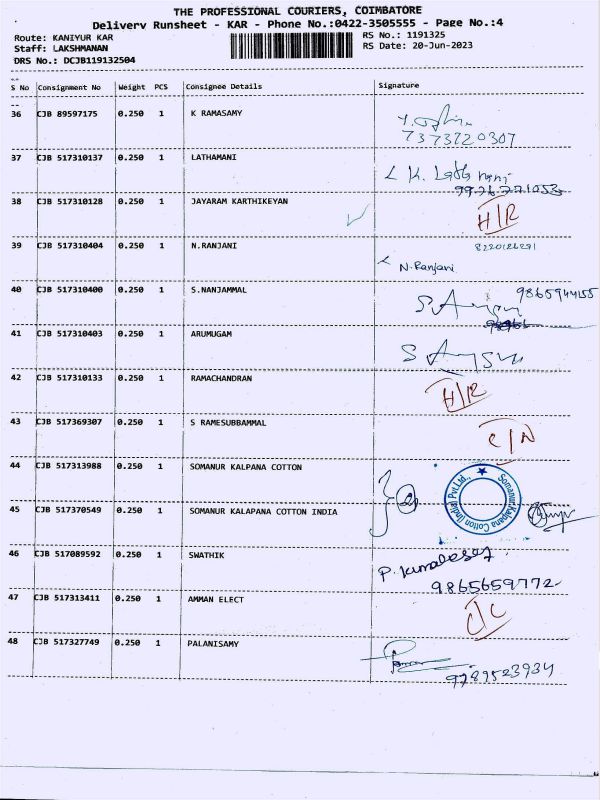 THE PROFESSIONAL COURIERS, COIMBATORE
Delivery Runsheet - KAR - Phone No.:0422-3505555 - Page No.:4
Route: KANIYUR KAR RS No.: 1191325
Staff: LAKSHMANAN RS Date: 20-Jun-2023
DRS No.: DCJB119132504
S No Consignment No Weight PCS Consignee Details Signature
36 CJB 89597175 0.250 1 K RAMASAMY
7373720307
37 CJB 517310137 0.250 1 LATHAMANI
K. Latha mani
38 CJB 517310128 0.250 1 JAYARAM KARTHIKEYAN H/R
39 CJB 517310404 0.250 1 N.RANJANI
N. Ranjani
40 CJB 517310400 0.250 1 S.NANJAMMAL 9865944155
41 CJB 517310403 0.250 1 ARUMUGAM
42 CJB 517310133 0.250 1 RAMACHANDRAN H/R
43 CJB 517369307 0.250 1 S RAMESUBBAMMAL C/N
44 CJB 517313988 0.250 1 SOMANUR KALPANA COTTON
Somanur Kalpana Cotton (India) Pvt.Ltd.,
45 CJB 517370549 0.250 1 SOMANUR KALAPANA COTTON INDIA
46 CJB 517089592 0.250 1 SWATHIK
9865659772
47 CJB 517313411 0.250 1 AMMAN ELECT C/C
48 CJB 517327749 0.250 1 PALANISAMY
9789523934